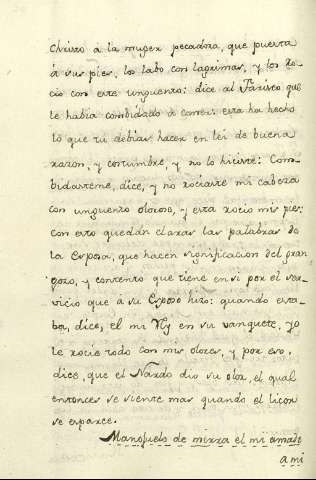 Christo à la muger pecadora, que puesta
à sus pies, los labo con lagrimas, y los ro-
cio con este unguento: dice al Fariseo que
le habia combidado à comer: esta ha hecho
lo que tu debias hacer en lei de buena
razon, y costumbre, y no lo hiciste: Com-
bidasteme, dice, y no rociaste mi cabeza
con unguento oloroso, y esta rocio mis pies:
con esto quedan claras las palabras de
la Esposa, que hacen significasion del gran
gozo, y contento que tiene en si por el ser-
vicio que à su Esposo hizo: quando esta-
ba, dice, el mi Rey en su vanquete, yo
le rocie todo con mis olores, y por eso,
dice, que el Nardo dio su olor, el qual
entonces se siente mas quando el licor
se esparce.
Manojuelo de mirra el mi amado
a mi